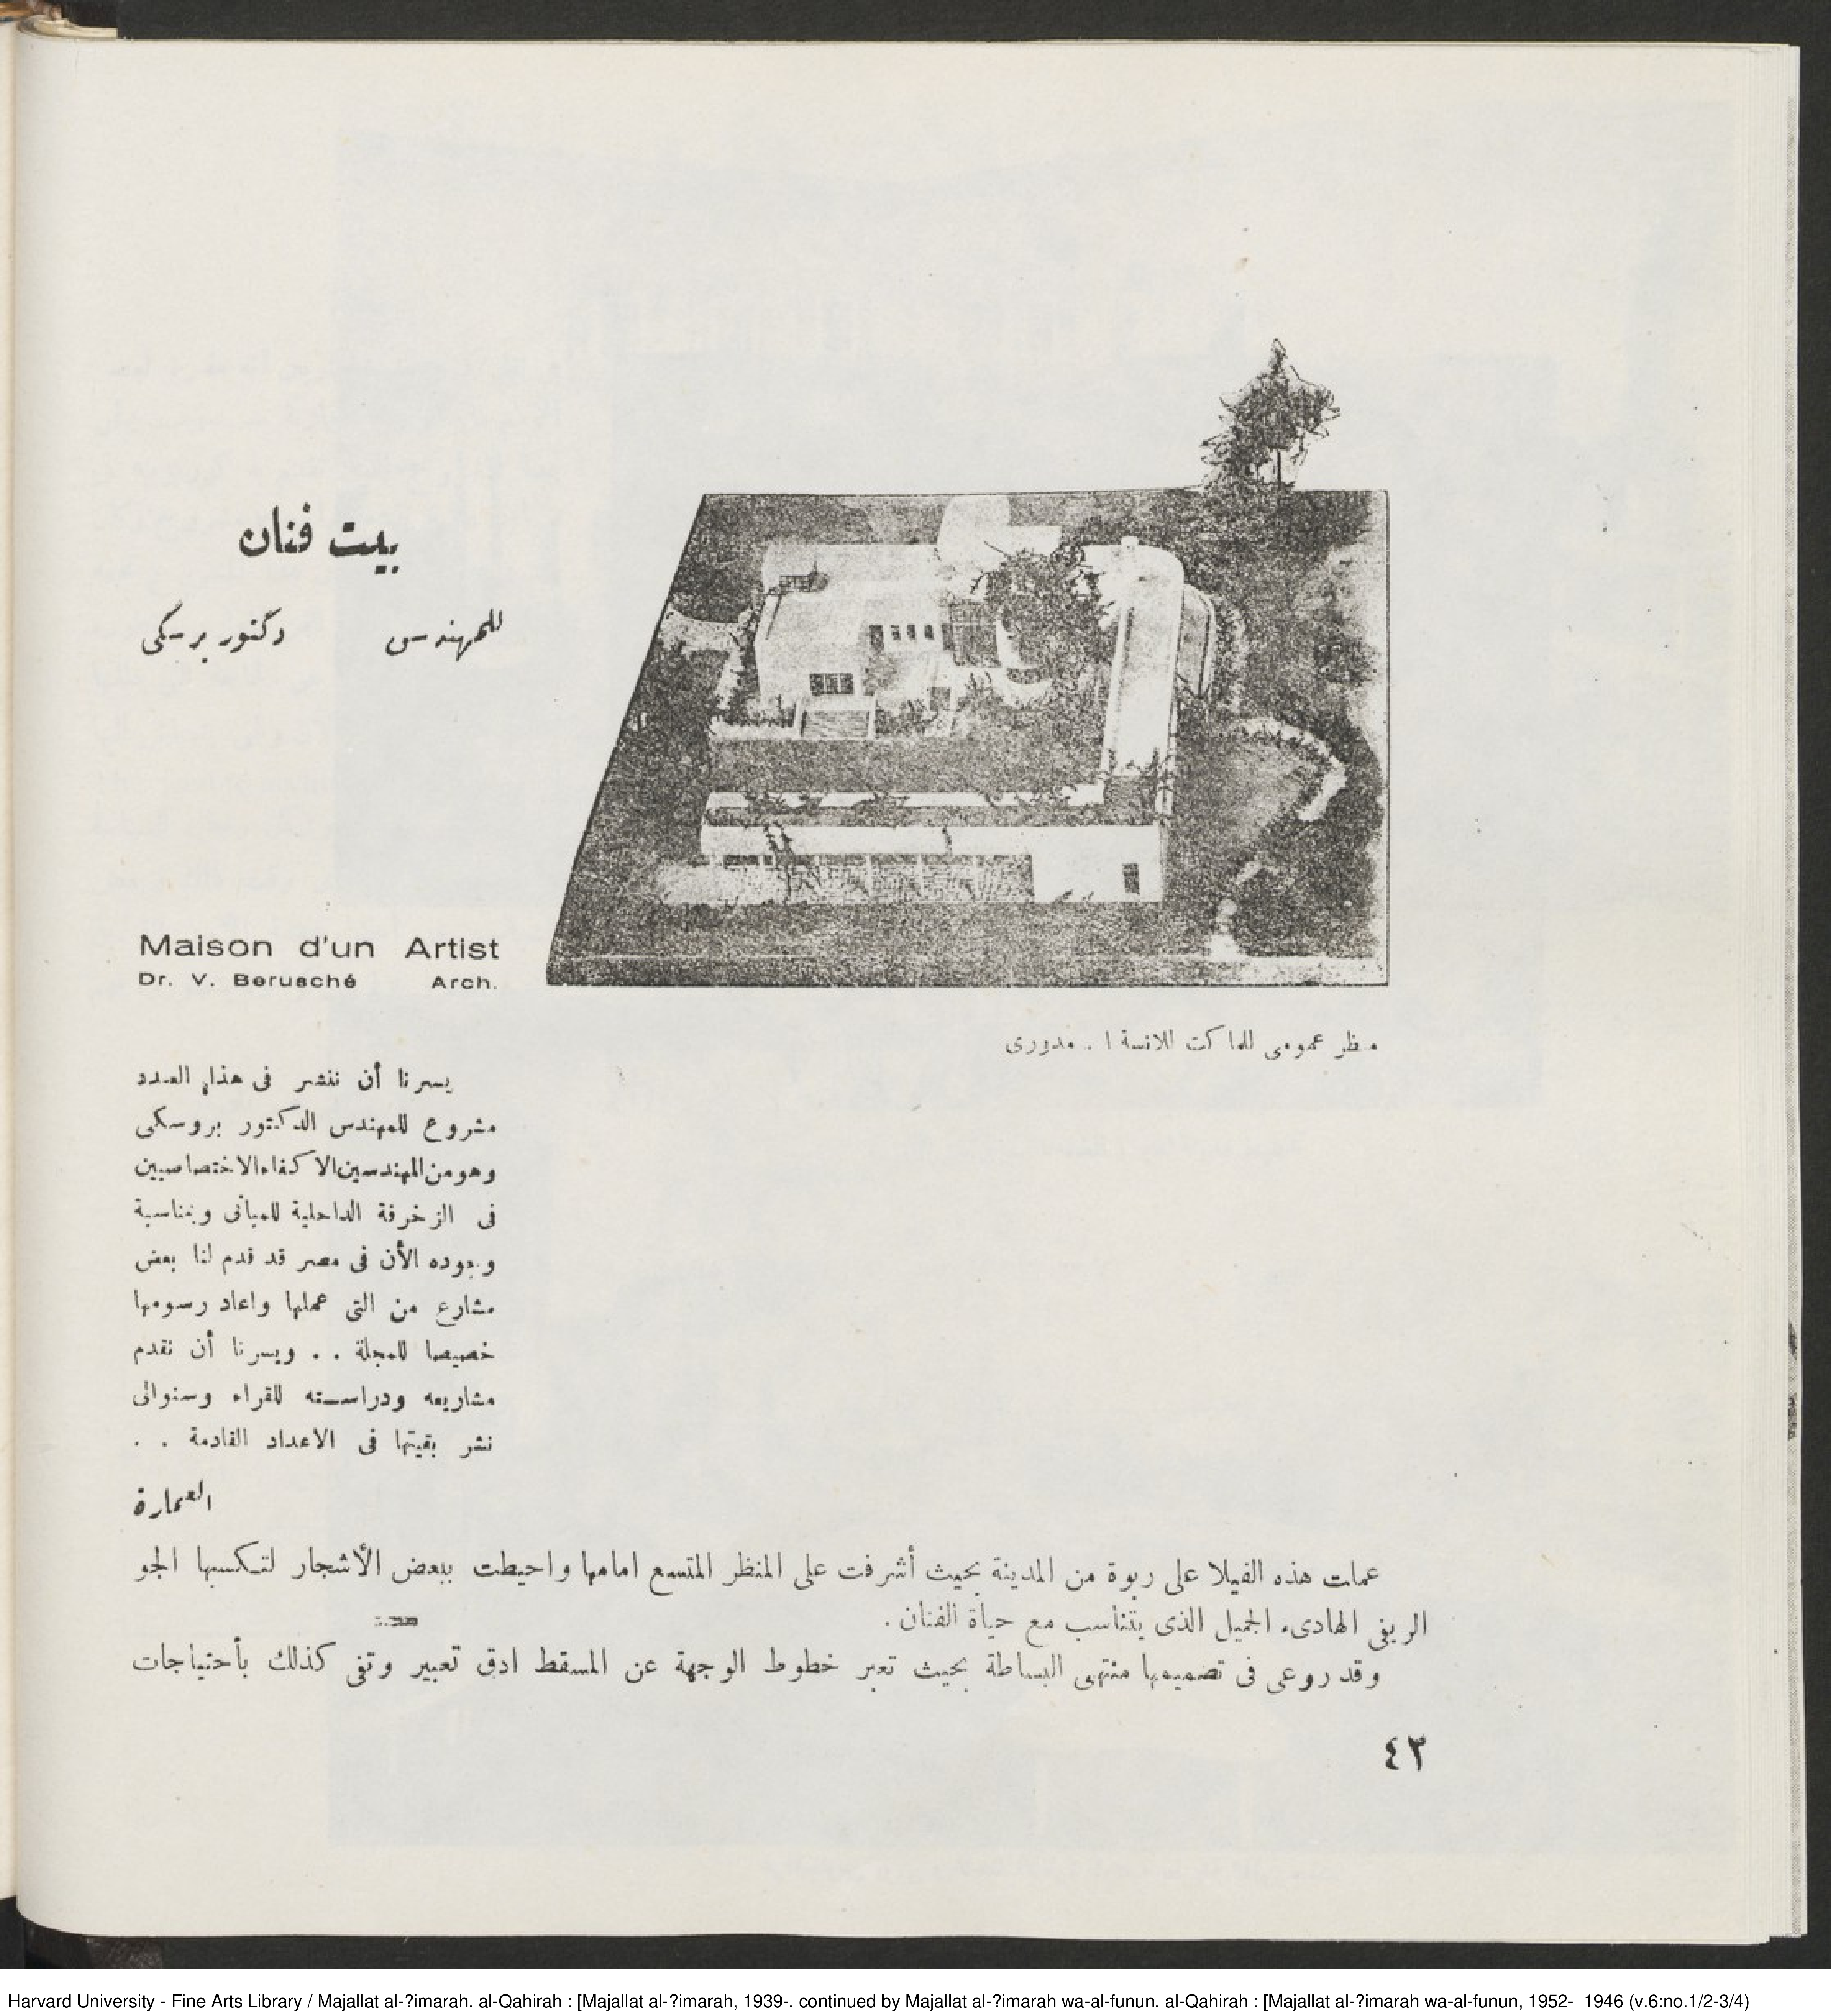 بيت فنان
للمهندس دكتور برسكى
Maison d'un Artist
Dr. V. Berusché Arch.
منظر عمومى للماكت للانسة ا . مدورى
يسرنا أن ننشر فى هذا العدد
مشروع للمهندس الدكتور بروسكى
وهو من المهندسين الاكفاء الاختصاصيين
فى الزخرفة الداخلية للمبانى وبمناسبة
وجوده الأن فى مصر قد قدم لنا بعض
مشارع من التى عملها واعاد رسومها
خصيصا للمجلة . . ويسرنا أن نقدم
مشاريعه ودراسته للقراء وسنوالى
نشر بقيتها فى الاعداد القادمة . .
العمارة
عملت هذه الفيلا على ربوة من المدينة بحيث أشرفت على المنظر المتسع امامها واحيطت ببعض الأشجار لتكسبها الجو
الريفى الهادىء الجميل الذى يتناسب مع حياة الفنان .
وقد روعى فى تصميمها منتهى البساطة بحيث تعبر خطوط الوجهة عن المسقط ادق تعبير وتفى كذلك بأحتياجات
٤٣
Harvard University - Fine Arts Library / Majallat al-?imarah. al-Qahirah : [Majallat al-?imarah, 1939-. continued by Majallat al-?imarah wa-al-funun. al-Qahirah : [Majallat al-?imarah wa-al-funun, 1952- 1946 (v.6:no.1/2-3/4)